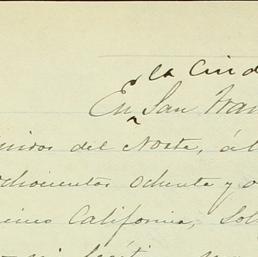 la Ciud
En ^ San Fran
nidos del Norte, á l
ochocientos ochenta y o
mino California, Sol